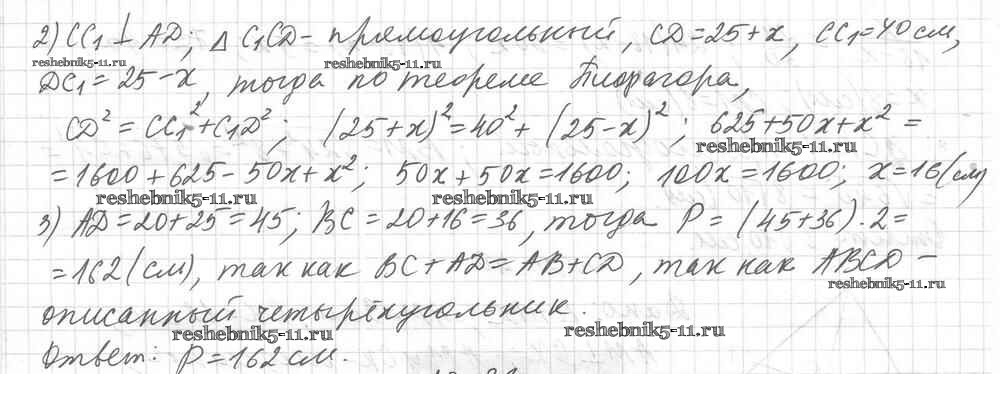 2) CC₁ ⊥ AD; △ C₁CD - прямоугольный, CD = 25 + x, CC₁ = 40 см,
reshebnik5-11.ru reshebnik5-11.ru
DC₁ = 25 - x, тогда по теореме Пифагора,
CD² = CC₁² + C₁D²; (25 + x)² = 40² + (25 - x)²; 625 + 50x + x² =
reshebnik5-11.ru
= 1600 + 625 - 50x + x²; 50x + 50x = 1600; 100x = 1600; x = 16 (см)
reshebnik5-11.ru reshebnik5-11.ru
3) AD = 20 + 25 = 45; BC = 20 + 16 = 36, тогда P = (45 + 36) · 2 =
= 162 (см), так как BC + AD = AB + CD, так как ABCD -
reshebnik5-11.ru
описанный четырёхугольник.
reshebnik5-11.ru reshebnik5-11.ru
Ответ: P = 162 см.